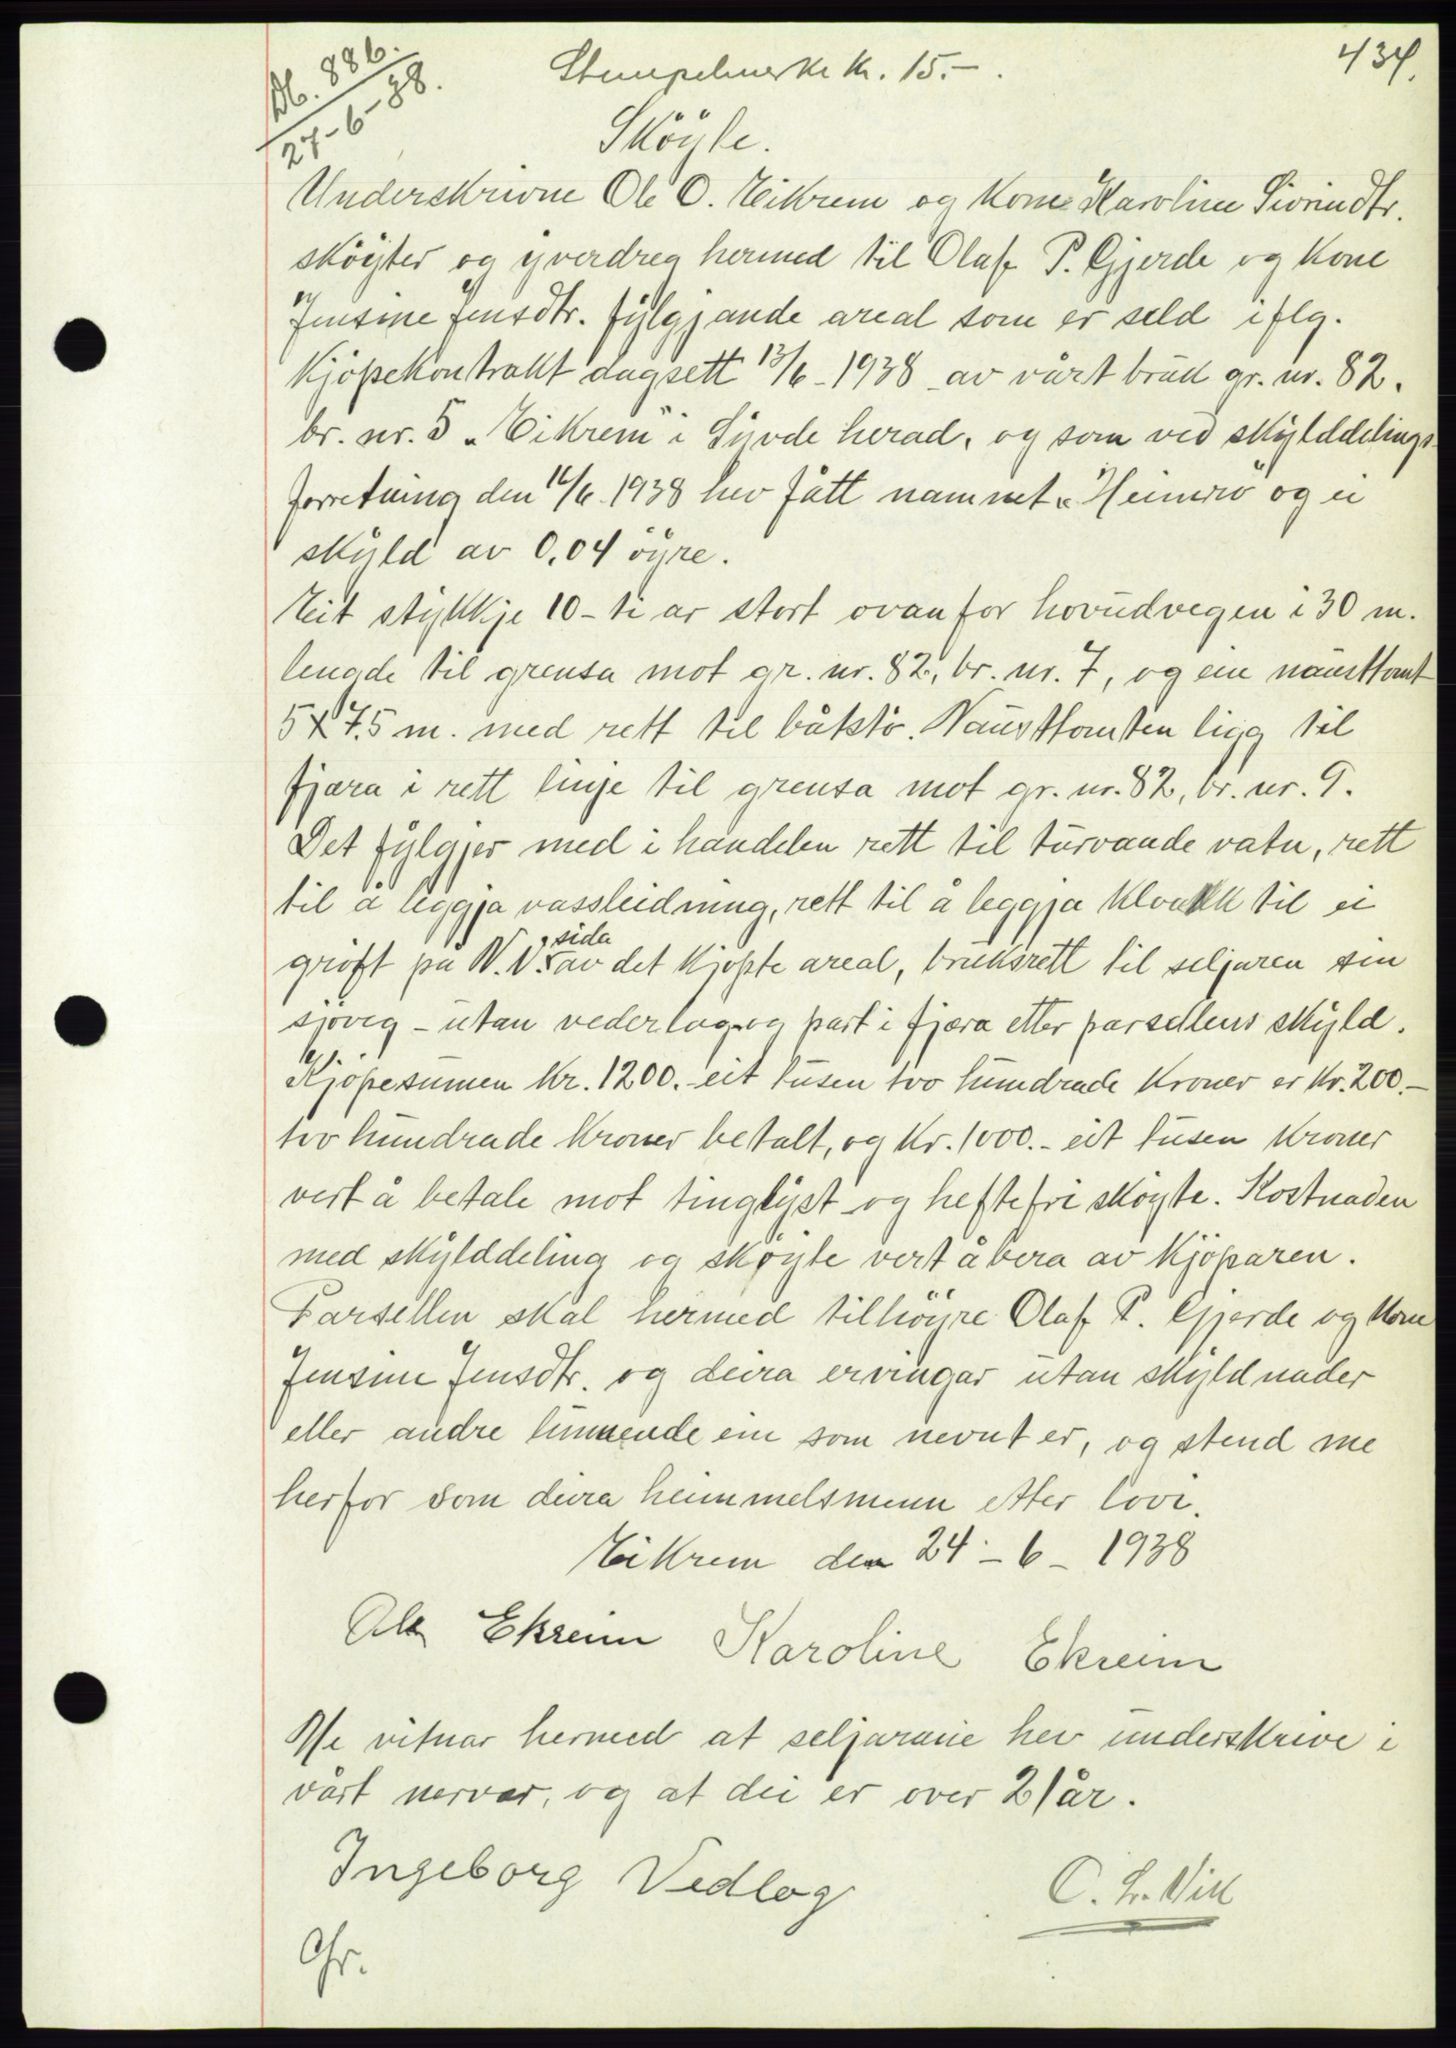 Db. 886.
27-6-38.
Stempelmerke kr. 15.-.
434.
Sköyte.
Underskrivne Ole O. Eikrem og Kone Karoline Sivrindtr.
sköyter og yverdreg hermed til Olaf P. Gjerde og Kone
Jensine Jensdtr. fylgjande areal som er seld iflg.
Kjöpekontrakt dagsett 13/6-1938 av vårt bruk gr. nr. 82.
br. nr. 5 "Eikrem" i Syvde herad, og som ved skylddelings-
forretning den 16/6-1938 hev fått namnet "Heimro" og ei
skyld av 0,04 öyre.
Eit stykkje 10-ti ar stort ovanfor hovudvegen i 30 m.
lengde til grensa mot gr. nr. 82, br. nr. 7, og ein nausttomt
5x7.5 m. med rett til båtstö. Nausttomten ligg til
fjæra i rett linje til grensa mot gr. nr. 82, br. nr. 9.
Det fylgjer med i handelen rett til turvande vatn, rett
til å leggja vassleidning, rett til å leggja kloakk til ei
gröft på N.V. sida av det kjöpte areal, bruksrett til seljaren sin
sjöveg - utan vederlag og part i fjæra etter parsellens skyld.
Kjöpesumen kr. 1200.- eit tusen tvo hundrade kroner er kr. 200.-
tvo hundrade kroner betalt, og kr. 1000.- eit tusen kroner
vert å betale mot tinglyst og heftefri sköyte. Kostnaden
med skylddeling og sköyte vert å bera av kjöparen.
Parsellen skal hermed tilhöyre Olaf P. Gjerde og Kone
Jensine Jensdtr. og deira ervingar utan skyldnader
eller andre enn som nevnt er, og stend me
herfor som deira heimmelsmenn etter lovi.
Eikrem den 24-6-1938
Ole Ekreim Karoline Ekreim
Me vitnar hermed at seljarane hev underskrive i
vårt nervær, og at dei er over 21 år.
Ingeborg Vedlog
C. L. Vik
Gr.